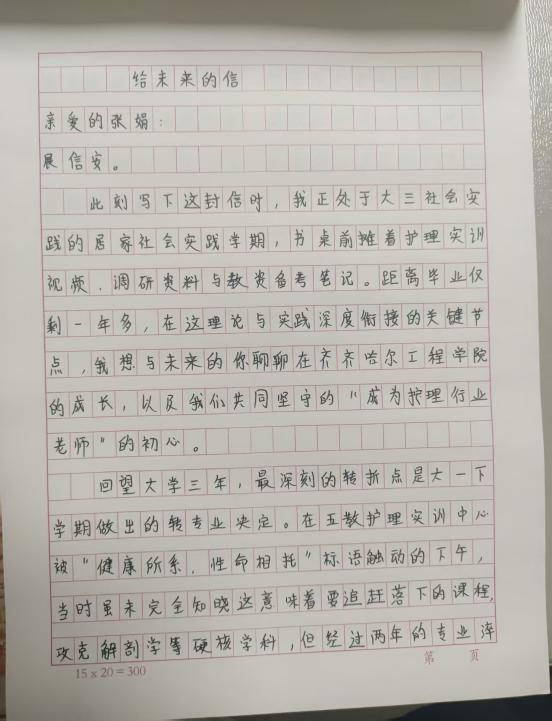 给未来的信
亲爱的张娟：
展信安。
此刻写下这封信时，我正处于大三社会实
践的居家社会实践学期，书桌前摊着护理实训
视频、调研资料与教资备考笔记。距离毕业仅
剩一年多，在这理论与实践深度衔接的关键节
点，我想与未来的你聊聊在齐齐哈尔工程学院
的成长，以及我们共同坚守的"成为护理行业
老师"的初心。
回望大学三年，最深刻的转折点是大一下
学期做出的转专业决定。在五教护理实训中心
被"健康所系，性命相托"标语触动的下午，
当时虽未完全知晓这意味着要追赶落下的课程，
攻克解剖学等硬核学科，但经过两年的专业淬
15×20=300
第 页